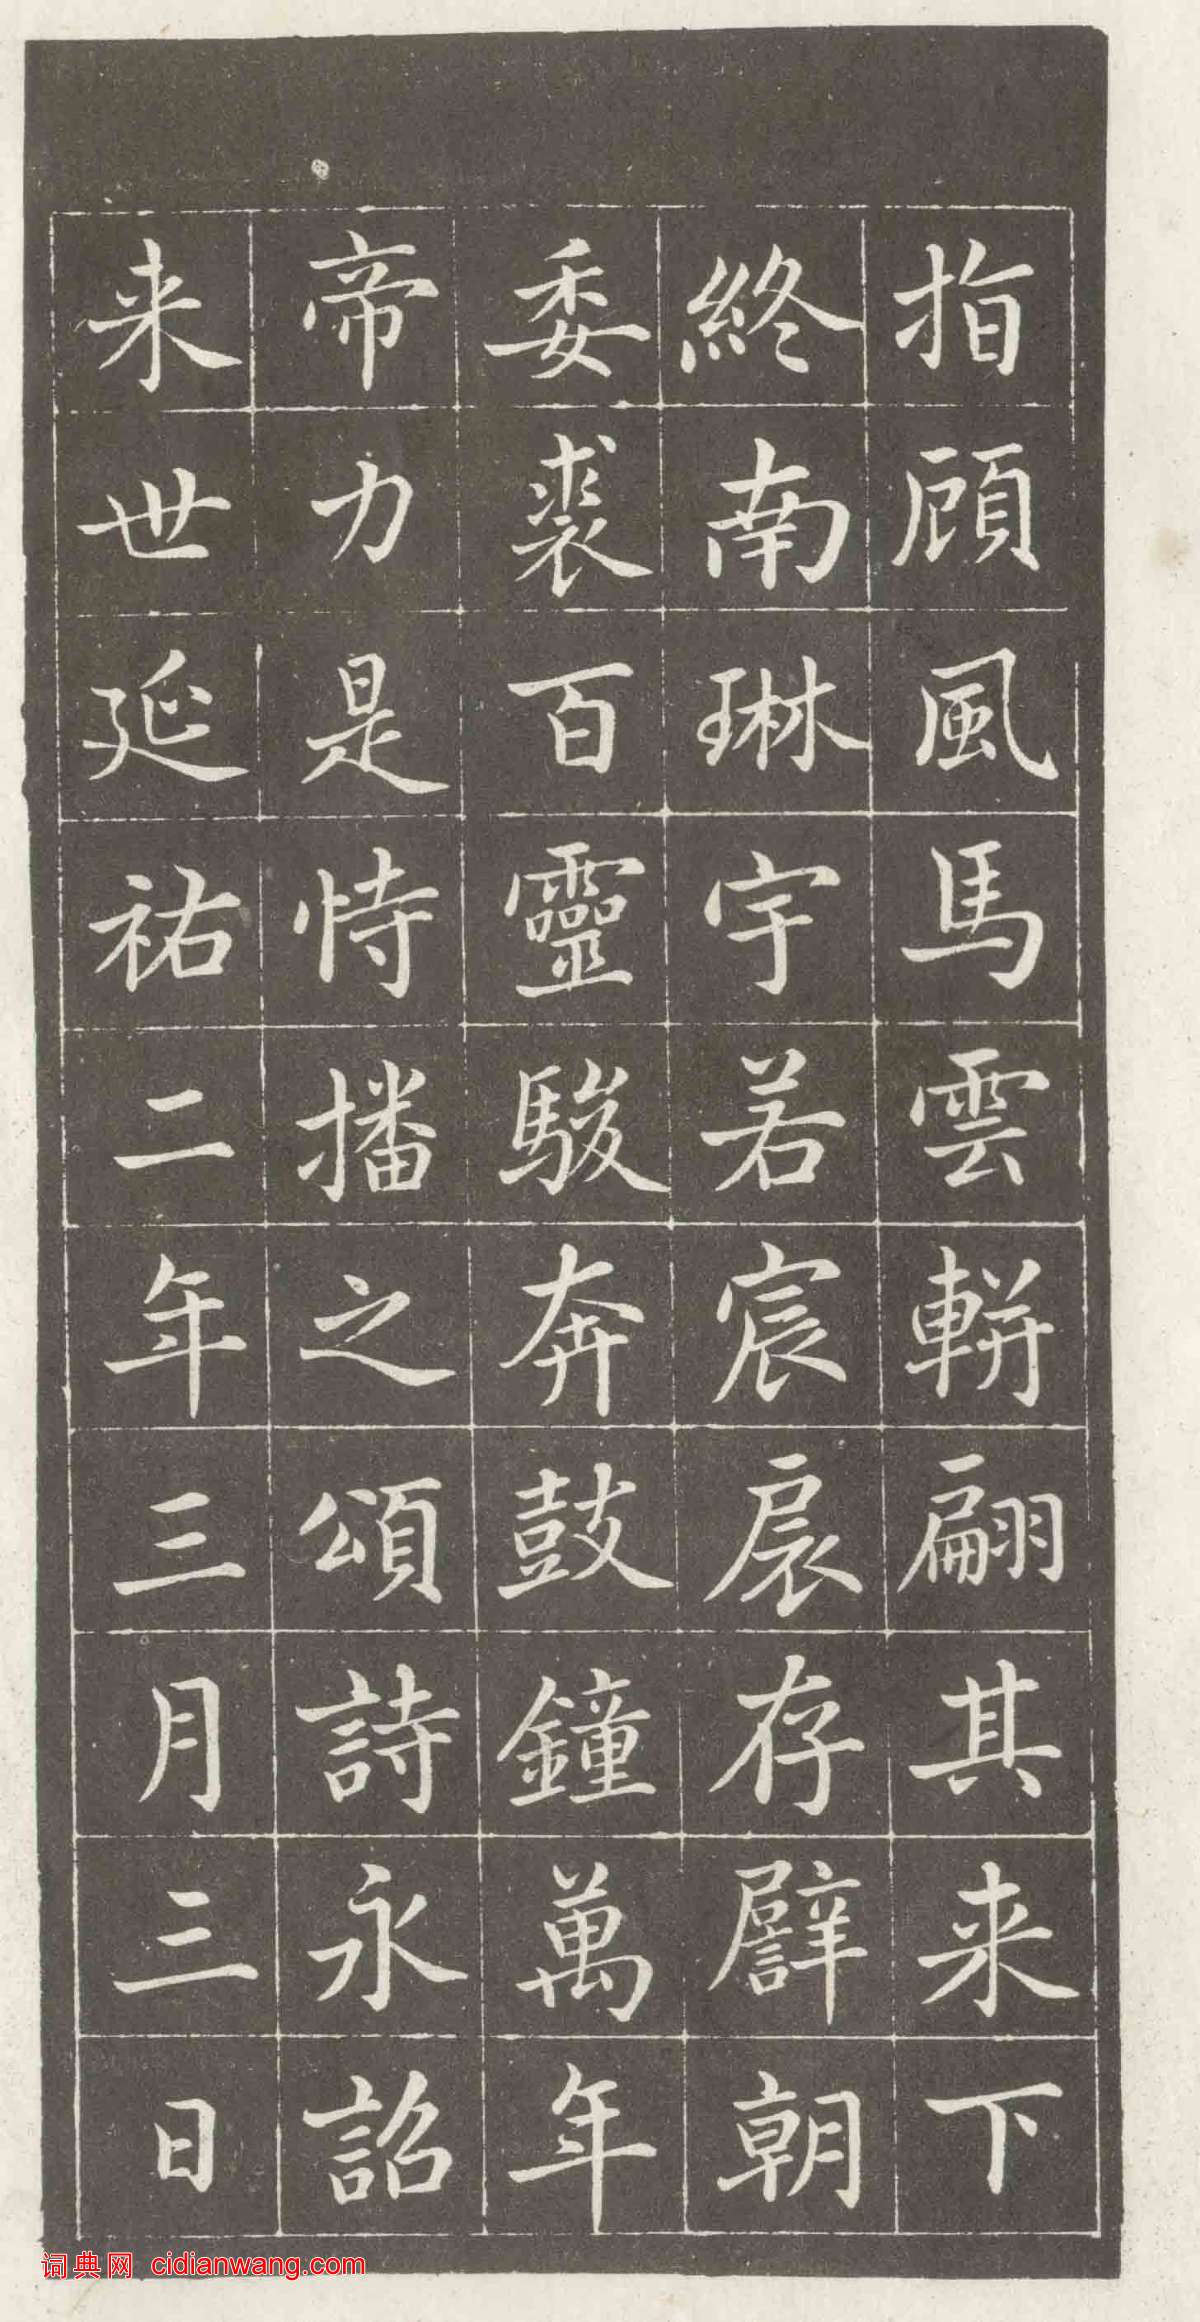 指顧風馬雲軿翩其来下
終南琳宇若宸扆存譬朝
委裘百靈駿奔鼓鐘萬年
帝力是恃播之頌詩永詔
来世延祐二年三月三日
词典网 cidianwang.com